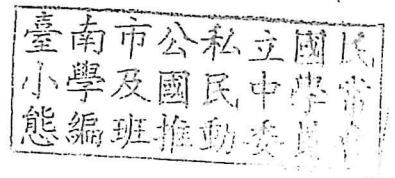 臺南市公私立國民
小學及國民中學常
態編班推動委員